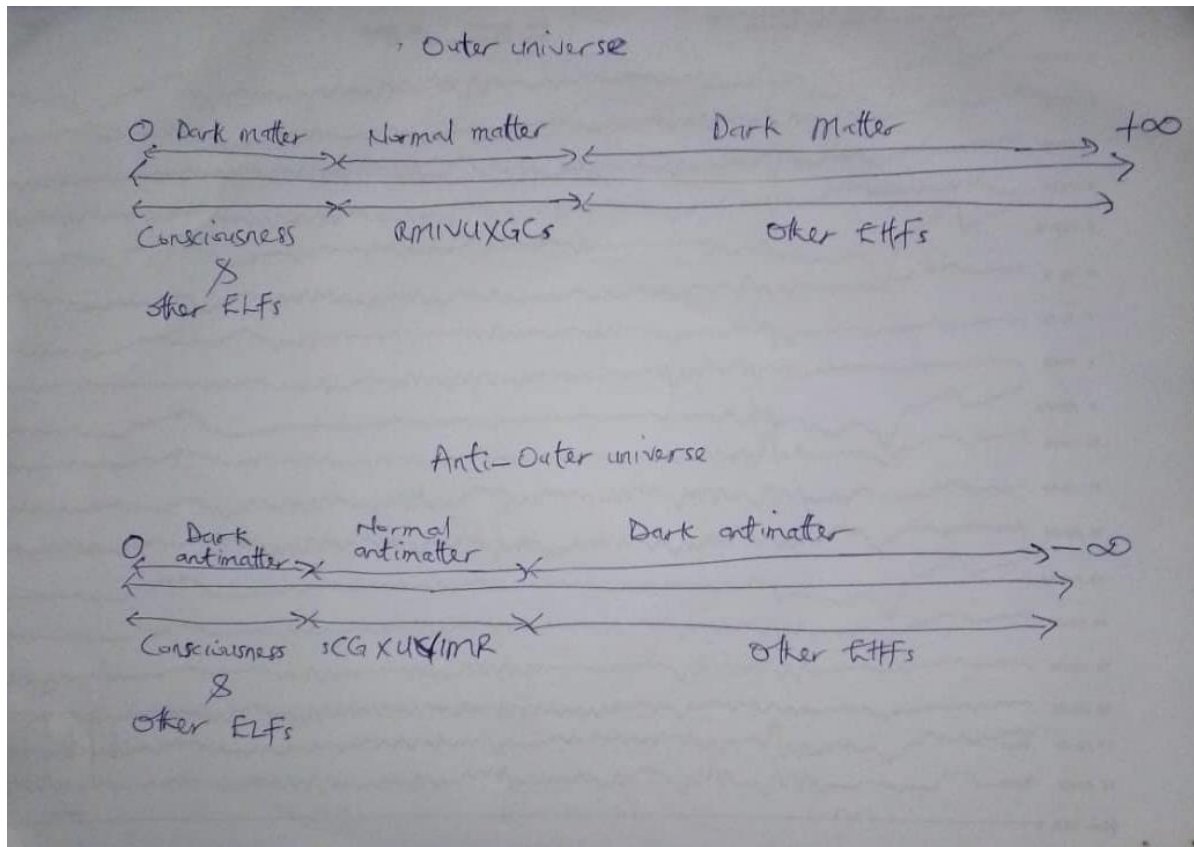 Outer universe
0 Dark matter Normal matter Dark Matter +∞
Consciousness RMIVUXGCs Other EHFs
&
other ELFs
Anti-Outer universe
0 Dark antimatter Normal antimatter Dark antimatter -∞
Consciousness Other EHFs
&
Other ELFs